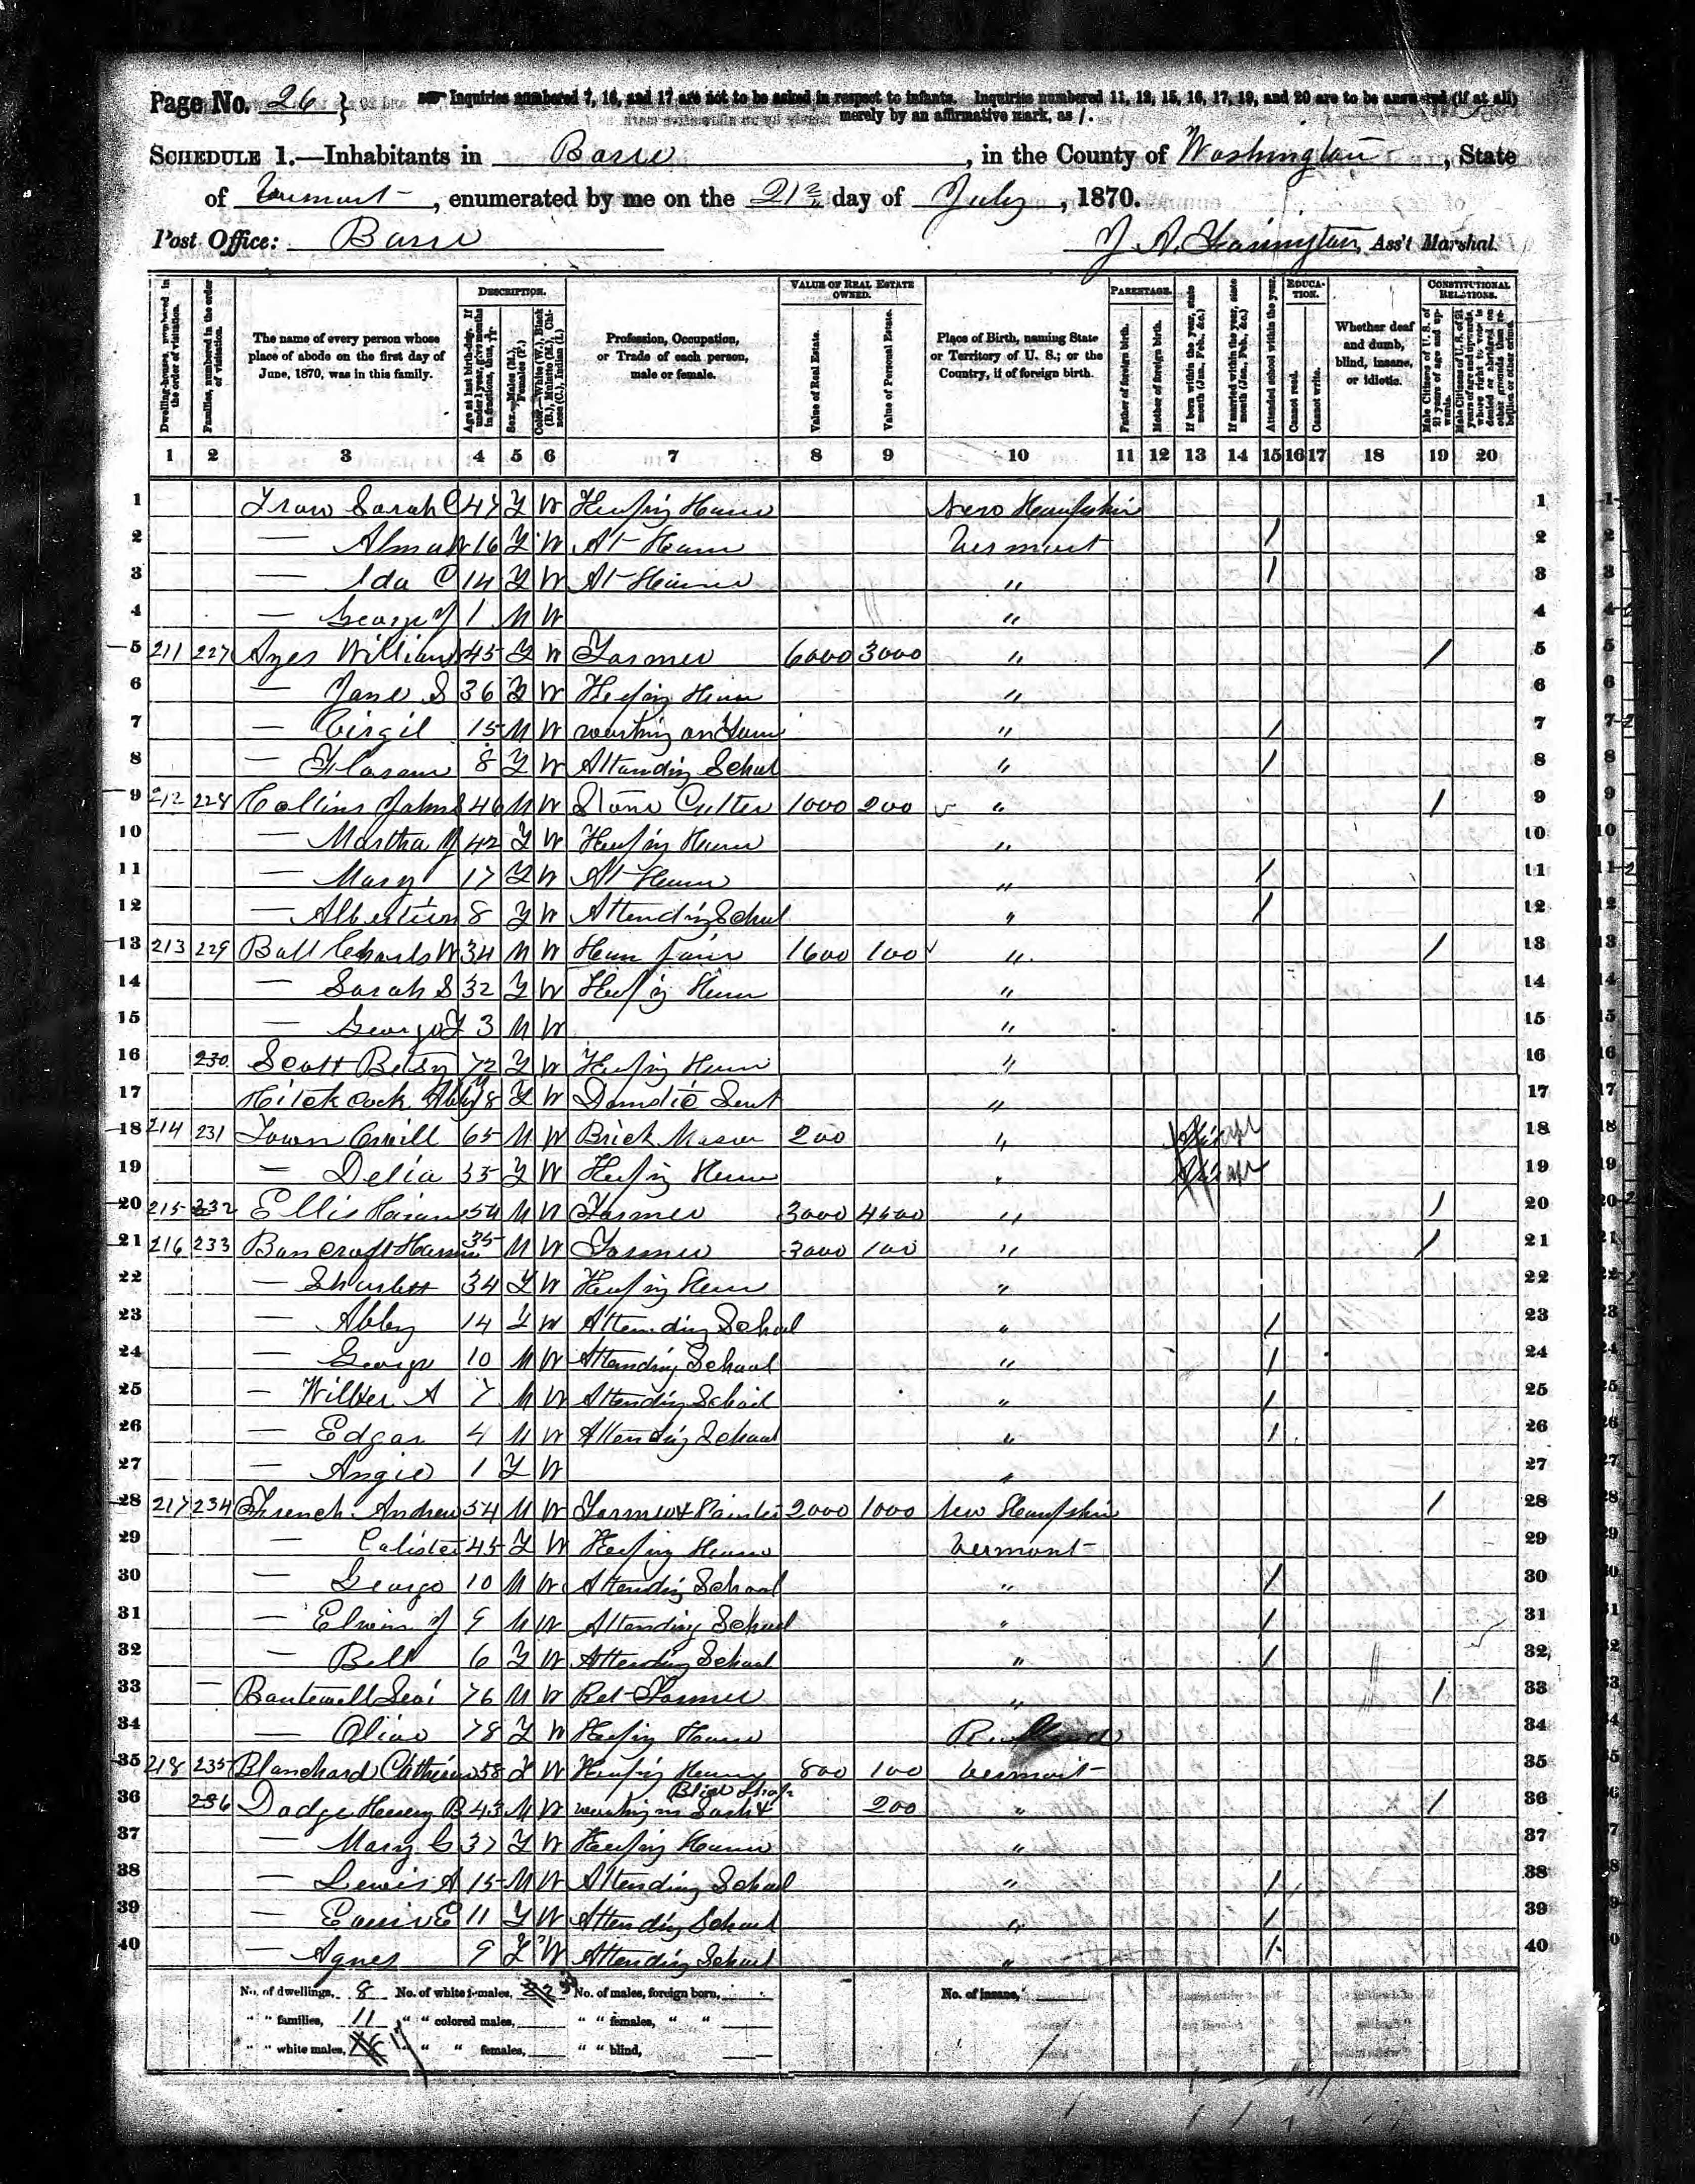 Page No. 26 } Inquiries numbered 7, 16, and 17 are not to be asked in respect to infants. Inquiries numbered 11, 12, 15, 16, 17, 19, and 20 are to be answered (if at all)
merely by an affirmative mark, as /.
SCHEDULE 1.—Inhabitants in Barre, in the County of Washington, State
of Vermont, enumerated by me on the 21st day of July, 1870.
Post Office: Barre
Ass't Marshal.
DESCRIPTION. VALUE OF REAL ESTATE OWNED. PARENTAGE. EDUCATION. CONSTITUTIONAL RELATIONS.
Dwelling-houses, numbered in the order of visitation. Families, numbered in the order of visitation. The name of every person whose place of abode on the first day of June, 1870, was in this family. Age at last birth-day. If under 1 year, give months in fractions, thus, Sex.—Males (M.), Females (F.) Color.—White (W.), Black (B.), Mulatto (M.), Chinese (C.), Indian (I.) Profession, Occupation, or Trade of each person, male or female. Value of Real Estate. Value of Personal Estate. Place of Birth, naming State or Territory of U. S.; or the Country, if of foreign birth. Father of foreign birth. Mother of foreign birth. If born within the year, state month (Jan., Feb., &c.) If married within the year, state month (Jan., Feb., &c.) Attended school within the year. Cannot read. Cannot write. Whether deaf and dumb, blind, insane, or idiotic. Male Citizens of U. S. of 21 years of age and upwards. Male Citizens of U. S. of 21 years of age and upwards, whose right to vote is denied or abridged on other grounds than rebellion or other crime.
1 2 3 4 5 6 7 8 9 10 11 12 13 14 15 16 17 18 19 20
1 Sarah C 47 F W Keeping House New Hampshire 1
2 — Alma W 16 F W At Home Vermont / 2
3 — Ida C 14 F W At Home " / 3
4 — George 1 M W " 4
5 211 227 Ayes William 45 W Farmer 6000 3000 " / 5
6 — Jane S 36 F W Keeping House " 6
7 — Virgil 15 M W working on Farm " / 7
8 — 8 F W Attending School " / 8
9 212 228 Collins John S 46 M W Stone Cutter 1000 200 " / 9
10 — Martha J 42 F W Keeping House " 10
11 — Mary 17 F W At Home " / 11
12 — 8 F W Attending School " / 12
13 213 229 Ball Charles W 34 M W 1600 100 " / 13
14 — Sarah S 32 F W Keeping House " 14
15 — George F 3 M W " 15
16 230 Scott Betsy 72 F W Keeping House " 16
17 Hitchcock Abby F W Domestic Servt " 17
18 214 231 Town 65 M W Brick Mason 200 " 18
19 — Delia 35 F W Keeping House " 19
20 215 232 Ellis Hiram 54 M W Farmer 3000 " / 20
21 216 233 Bancroft 35 M W Farmer 3000 100 " / 21
22 — 34 F W Keeping House " 22
23 — Abby 14 F W Attending School " / 23
24 — George 10 M W Attending School " / 24
25 — Wilber A 7 M W Attending School " / 25
26 — Edgar 4 M W Attending School " / 26
27 — Angie 1 F W " 27
28 217 234 French Andrew 54 M W Farmer & Painter 2000 1000 New Hampshire / 28
29 — Calista 45 F W Keeping House Vermont 29
30 — George 10 M W Attending School " / 30
31 — Elwin J 9 M W Attending School " / 31
32 — Bell 6 F W Attending School " / 32
33 — Boutwell Levi 76 M W Ret Farmer " / 33
34 — Olive 78 F W Keeping House 34
35 218 235 Blanchard Catherine 58 F W Keeping House 800 100 Vermont 35
36 236 Dodge Henry B 43 M W working in Sash & Blind Shop 200 " / 36
37 — Mary C 37 F W Keeping House " 37
38 — Lewis A 15 M W Attending School " / 38
39 — E 11 F W Attending School " / 39
40 — Agnes 9 F W Attending School " / 40
No. of dwellings, 8 No. of white females, No. of males, foreign born, No. of insane,
" " families, 11 " " colored males, " " females, " "
" " white males, 17 " " females, " " blind,